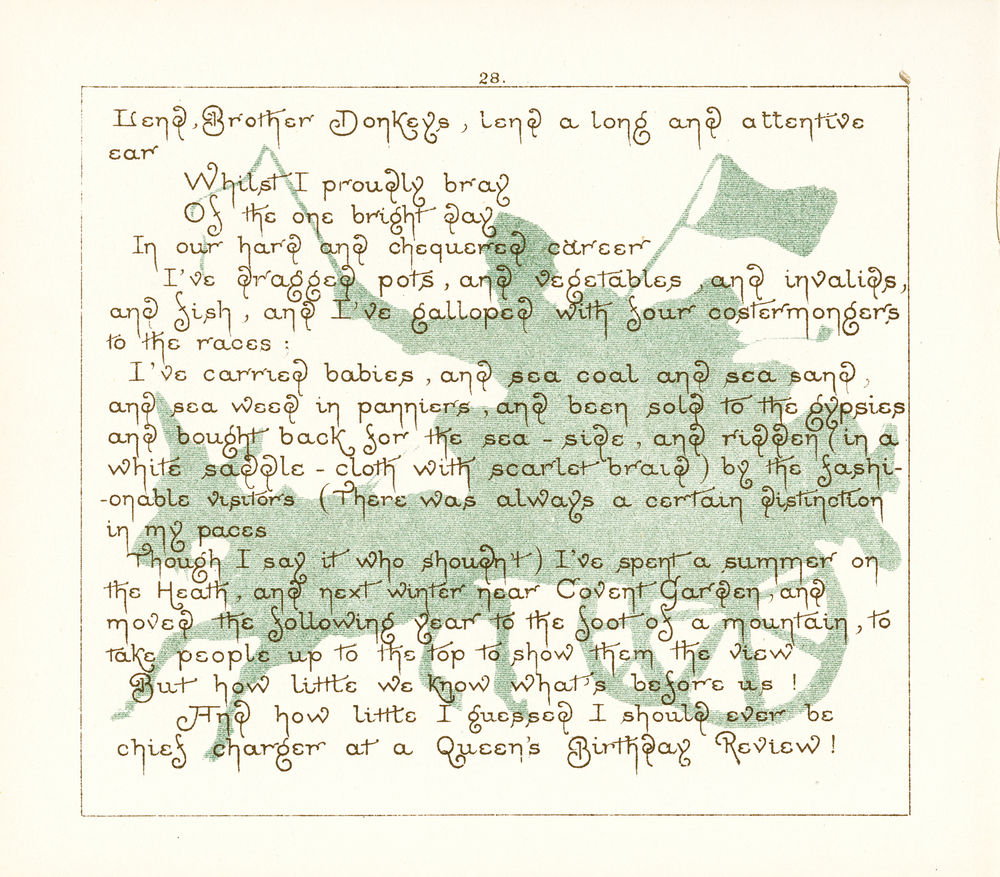 28.
Lend, Brother Donkeys, lend a long and attentive
ear
Whilst I proudly bray
Of the one bright day
In our hard and chequered career
I've dragged pots, and vegetables, and invalids,
and fish, and I've galloped with four costermongers
to the races:
I've carried babies, and sea coal and sea sand,
and sea weed in panniers, and been sold to the gypsies
and bought back for the sea-side, and ridden (in a
white saddle-cloth with scarlet braid) by the fashi-
-onable visitors (There was always a certain distinction
in my paces
Though I say it who shoudn't) I've spent a summer on
the Heath, and next winter near Covent Garden, and
moved the following year to the foot of a mountain, to
take people up to the top to show them the view
But how little we know what's before us!
And how little I guessed I should ever be
chief charger at a Queen's Birthday Review!